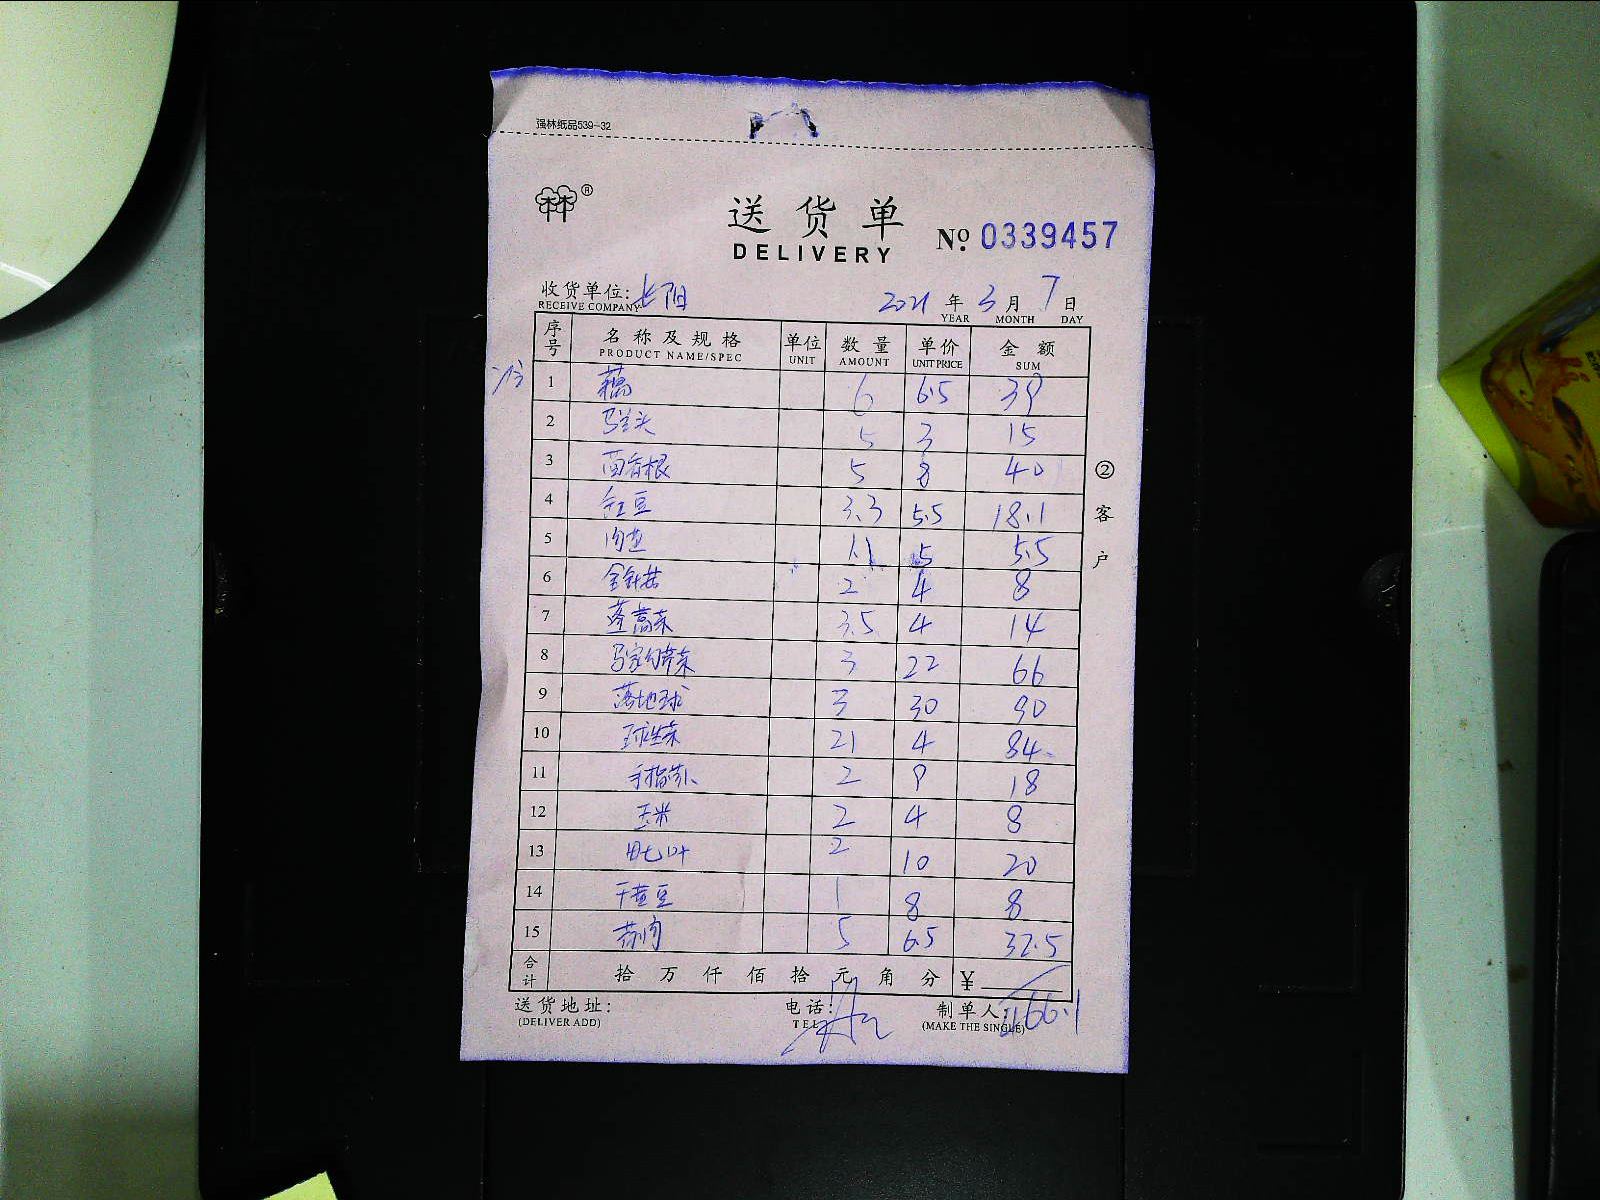 强林纸品539-32
送货单
DELIVERY
№ 0339457
收货单位: 长阳
RECEIVE COMPANY
2021 年 3 月 7 日
YEAR MONTH DAY
序号 名称及规格 单位 数量 单价 金额
PRODUCT NAME/SPEC UNIT AMOUNT UNIT PRICE SUM
1 藕 6 6.5 39
2 马兰头 5 3 15
3 茴香根 5 8 40
4 红豆 3.3 5.5 18.1
5 1.1 5 5.5
6 金针菇 2 4 8
7 蓬蒿菜 3.5 4 14
8 3 22 66
9 落地球 3 30 90
10 球生菜 21 4 84
11 2 9 18
12 玉米 2 4 8
13 2 10 20
14 干黄豆 1 8 8
15 5 6.5 32.5
合计 拾万仟佰拾元角分 ¥
② 客户
送货地址: 电话: 制单人:
(DELIVER ADD) TEL (MAKE THE SINGLE)
466.1